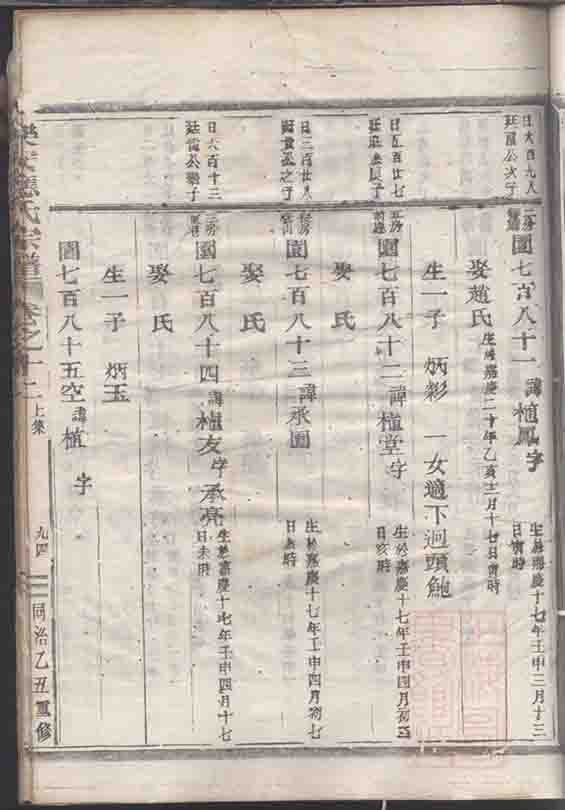 日六百九
廷 公次子
園七百八十一 諱植鳳 字 生於嘉慶十七年壬申三月十三
日寅時
娶趙氏 生於嘉慶二十年乙亥十二月十七日寅時
生一子 炳彩 一女適下迴頭鮑
日五百廿七
園七百八十二 諱植堂 字 生於嘉慶十七年壬申四月初
日亥時
娶氏
日三百廿八
園七百八十三 諱承園 生於嘉慶十七年壬申四月初七
日 時
娶氏
日六百十三
園七百八十四 諱植友 字承亮 生於嘉慶十七年壬申四月十七
日未時
娶氏
生一子 炳玉
園七百八十五空 諱植 字
氏宗譜 卷之十二 上集 九四 同治乙丑重修